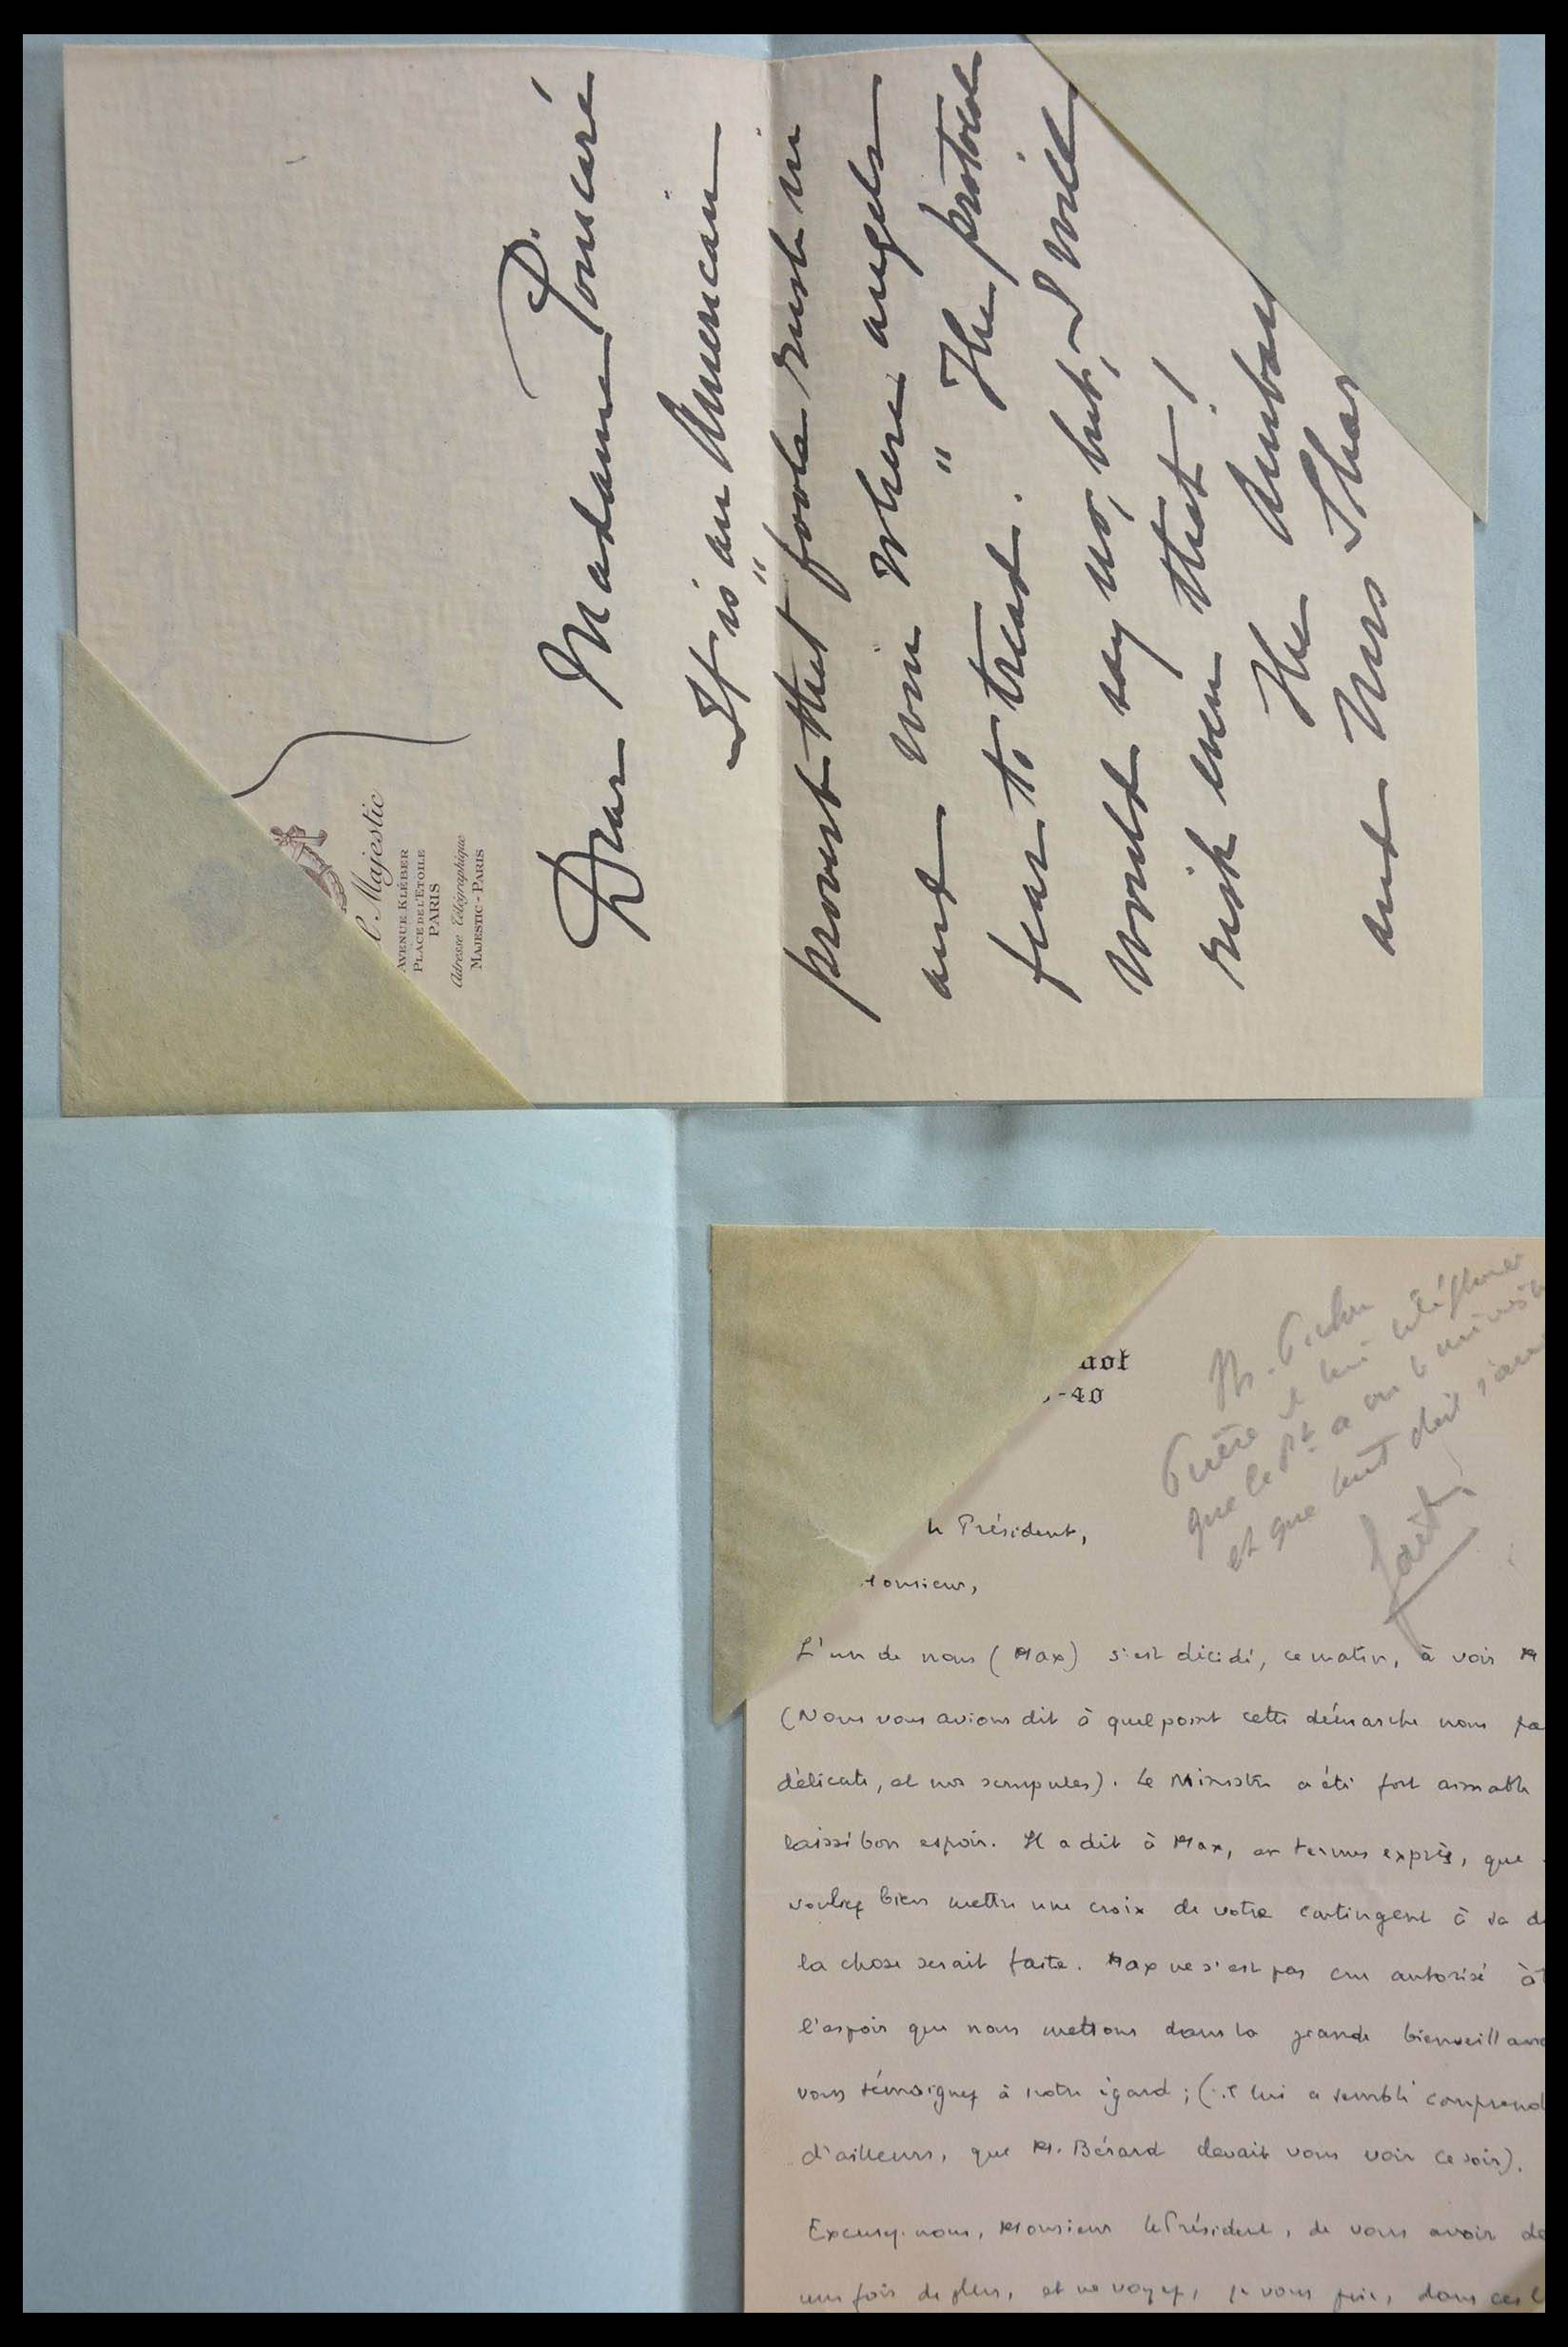 l Majestic
AVENUE KLÉBER
PLACE DE L'ETOILE
PARIS
Adresse Télégraphique
MAJESTIC - PARIS
Dear Madame Poincaré
It is an American
proverb that "fools rush in
and win where angels
fear to tread." The protocol
would say no, but, I will
risk even that!
The Ambass
and Mrs Shar
-40
Prière de lui téléphoner
que le Pt a vu le minist
et que tout doit s'arr
fait
le Président,
Monsieur,
L'un de nous (Max) s'est décidé, ce matin, à voir M
(Nous vous avions dit à quel point cette démarche nous pa
délicate, et nos scrupules). Le Ministre a été fort aimable
laissé bon espoir. Il a dit à Max, en termes exprès, que
vouliez bien mettre une croix de votre contingent à sa d
la chose serait faite. Max ne s'est pas cru autorisé à
l'espoir que nous mettons dans la grande bienveillanc
vous témoignez à notre égard; (il lui a semblé comprend
d'ailleurs, que M. Bérard devait vous voir ce soir).
Excusez-nous, Monsieur le Président, de vous avoir de
une fois de plus, et ne voyez, je vous prie, dans ces l